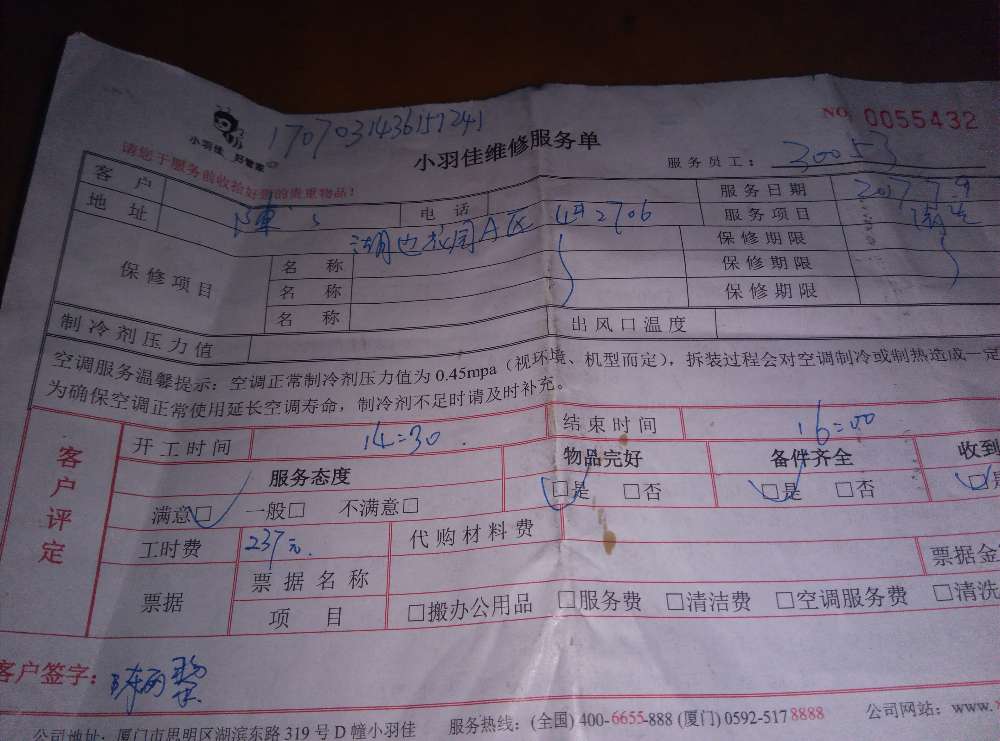 小羽佳 好管家
17070314361517241
小羽佳维修服务单
NO: 0055432
请您于服务前收拾好您的贵重物品!
服务员工: 30053
客户 电话 服务日期 2017 7 9
地址 湖边花园A区 2706 服务项目
保修项目 名称 保修期限
名称 保修期限
名称 保修期限
制冷剂压力值 出风口温度
空调服务温馨提示:空调正常制冷剂压力值为0.45mpa(视环境、机型而定),拆装过程会对空调制冷或制热造成一定
为确保空调正常使用延长空调寿命,制冷剂不足时请及时补充。
客户评定
开工时间 14:30. 结束时间 16:00
服务态度 物品完好 备件齐全 收到
满意□ 一般□ 不满意□ □是 □否 □是 □否 □是
工时费 237元. 代购材料费
票据 票据名称 票据金
项目 □搬办公用品 □服务费 □清洁费 □空调服务费 □清洗
客户签字:
公司地址:厦门市思明区湖滨东路319号D幢小羽佳 服务热线:(全国)400-6655-888 (厦门)0592-5178888 公司网站:www.